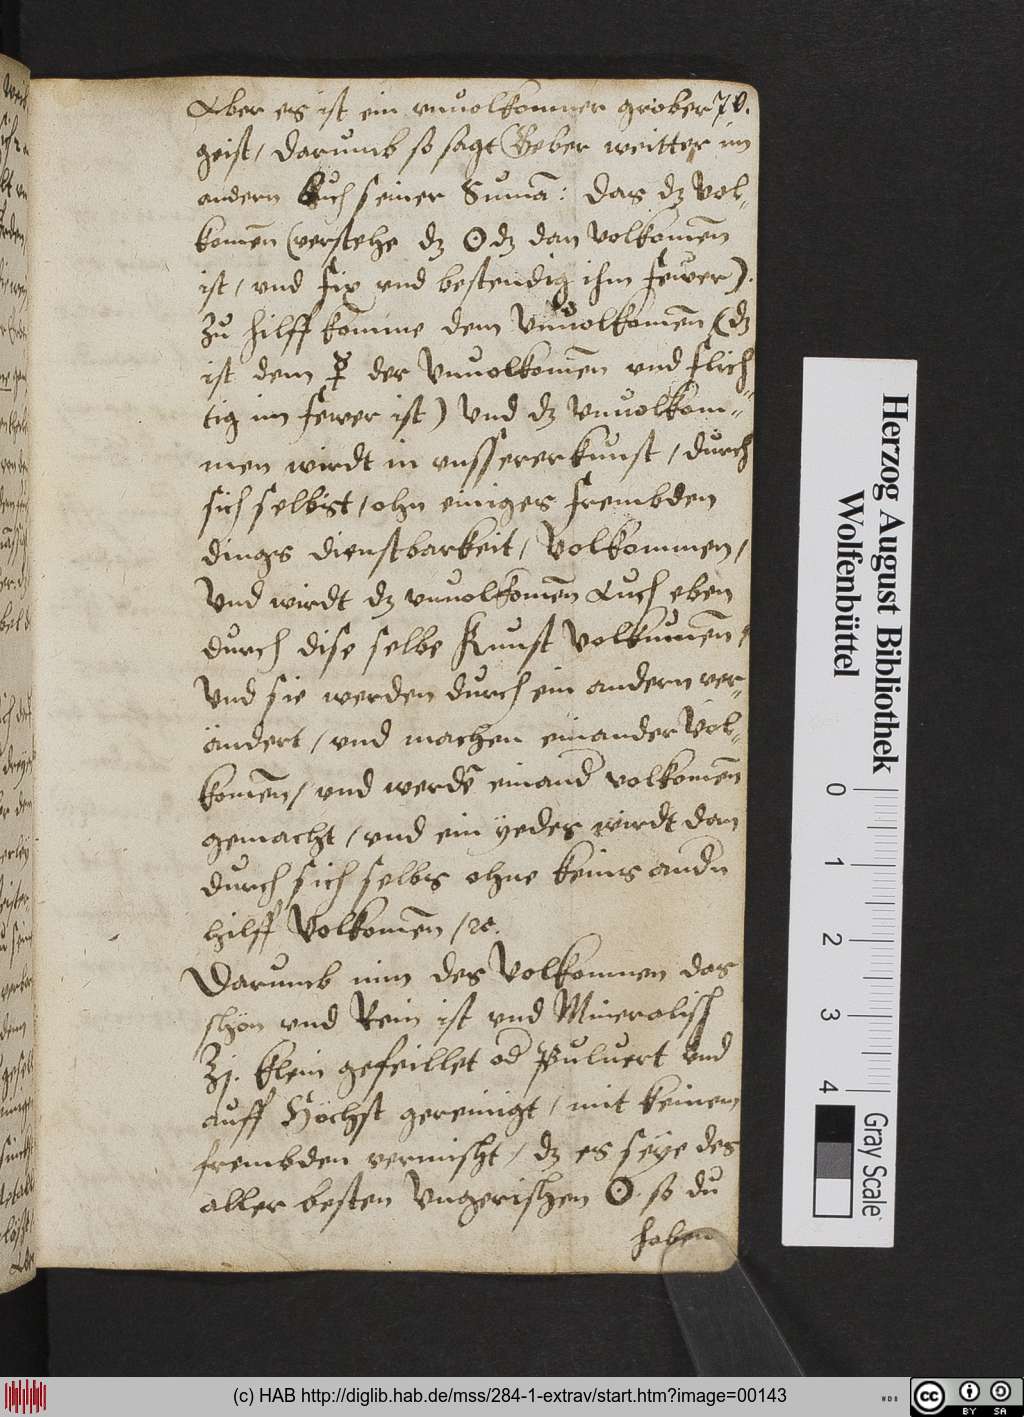 Aber es ist ein vnuolkomner grober 70.
geist / darumb so sagt Geber weitter im
andern buch seiner Sum̄a: das dz vol-
kom̄en (verstehe dz ☉ dz dan volkom̄en
ist / vnd fix vnd bestendig ihm fewer).
Zu hilff kom̄me dem Vnuolkom̄en (dz
ist dem ☿ der vnuolkom̄en vnd flich-
tig im fewer ist) vnd dz vnuolkom-
men wirdt in vnssererkunst / durch
sich selbst / ohn einiges frembden
dings dienstbarkeit / volkommen /
Vnd wirdt dz vnuolkom̄en Auch eben
durch dise selbe Kunst volkum̄en /
Vnd sie werden durch ein andern ver-
ändert / vnd machen einander vol-
kom̄en / vnd werdē einand volkom̄en
gemacht / vnd ein yedes wirdt dan
durch sich selbs ohne keins andn
hilff Volkom̄en / ꝛc.
Darumb nim des Volkomnen das
schön vnd Rein ist vnd Mineralisch
ʒj. klein gefeillet od Puluert vnd
auff Höchst gereinigt / mit keinem
frembden vermischt / dz es seye des
aller besten Vngerischen ☉. so du
haben
Herzog August Bibliothek
Wolfenbüttel
0 1 2 3 4
Gray Scale
(c) HAB http://diglib.hab.de/mss/284-1-extrav/start.htm?image=00143
WDB
cc BY SA